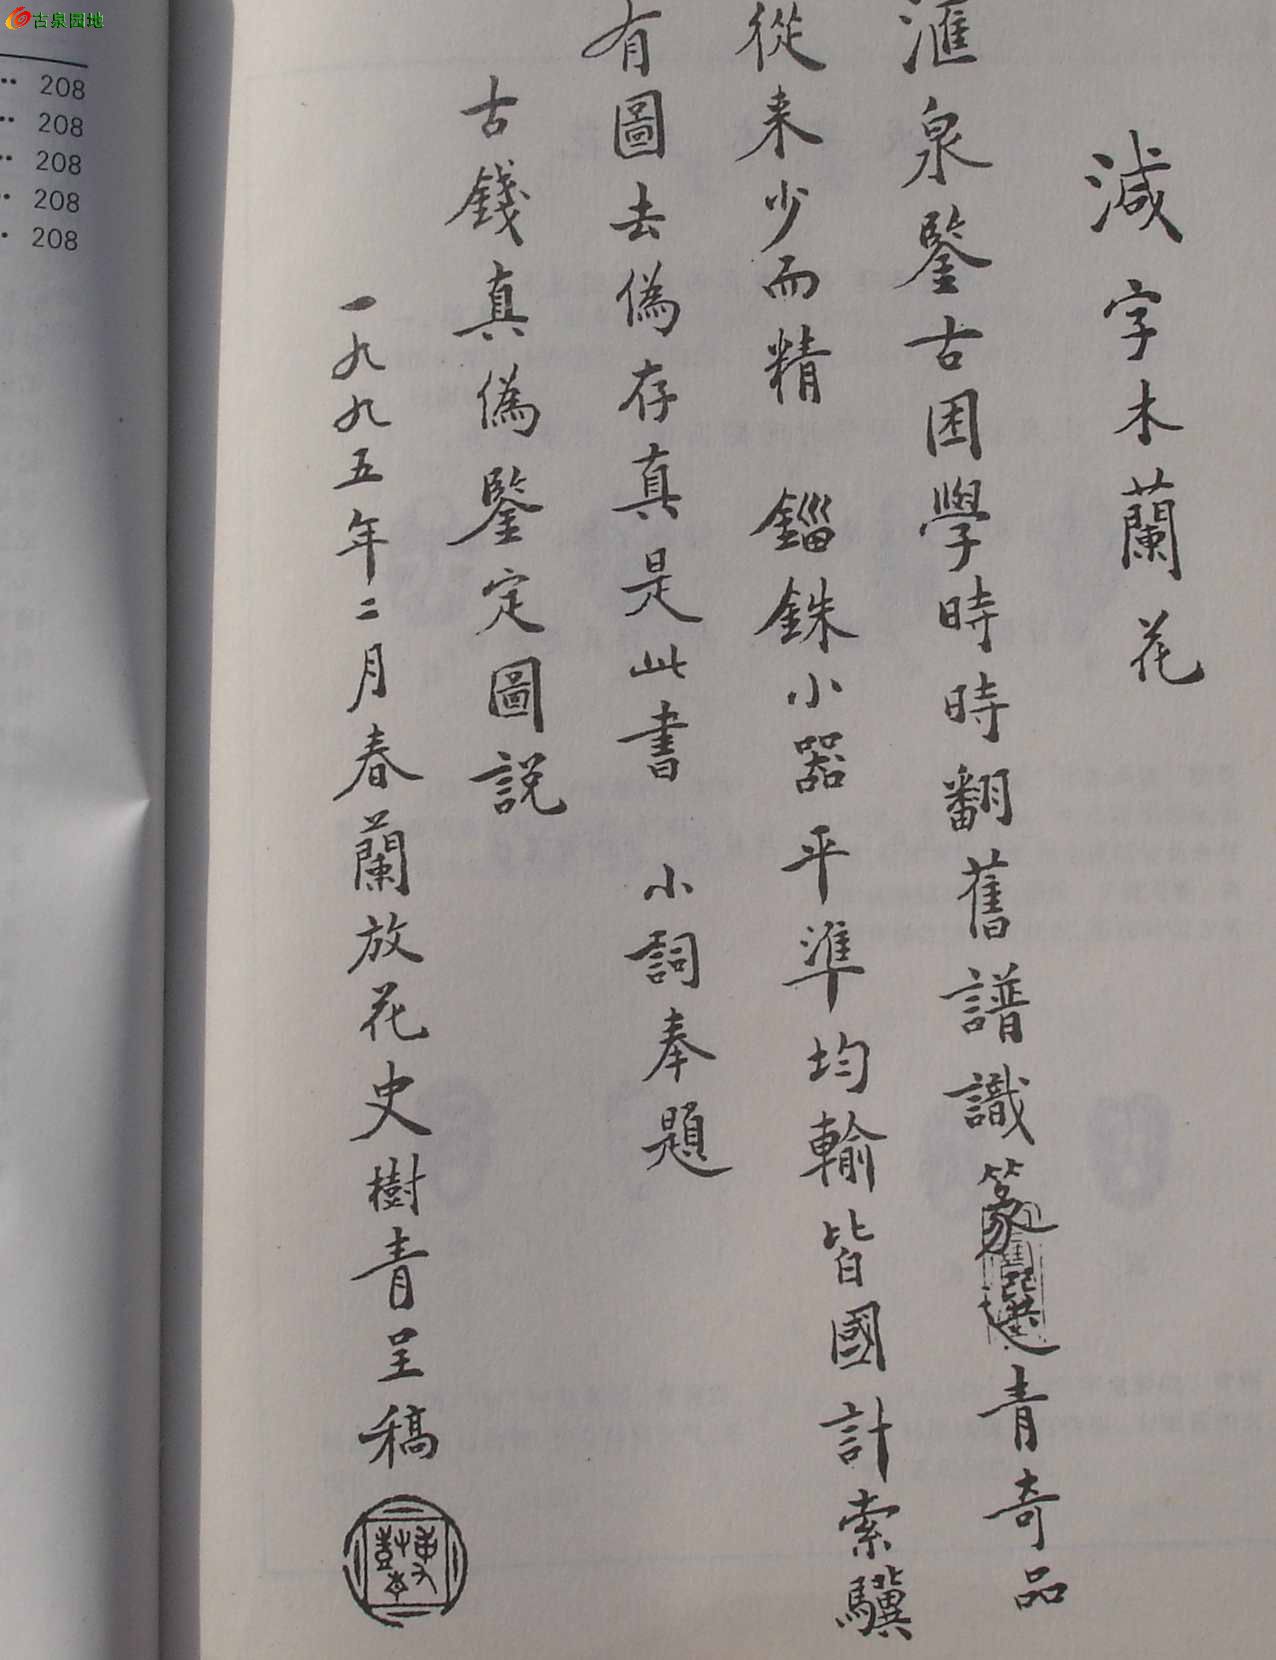 古泉园地
208
208
208
208
208
減字木蘭花
滙泉鑒古困學時時翻舊譜識篆選青奇品
從来少而精 錙銖小器平準均輸皆國計索驥
有圖去偽存真是此書 小詞奉題
古錢真偽鑒定圖説
一九九五年二月春蘭放花史樹青呈稿